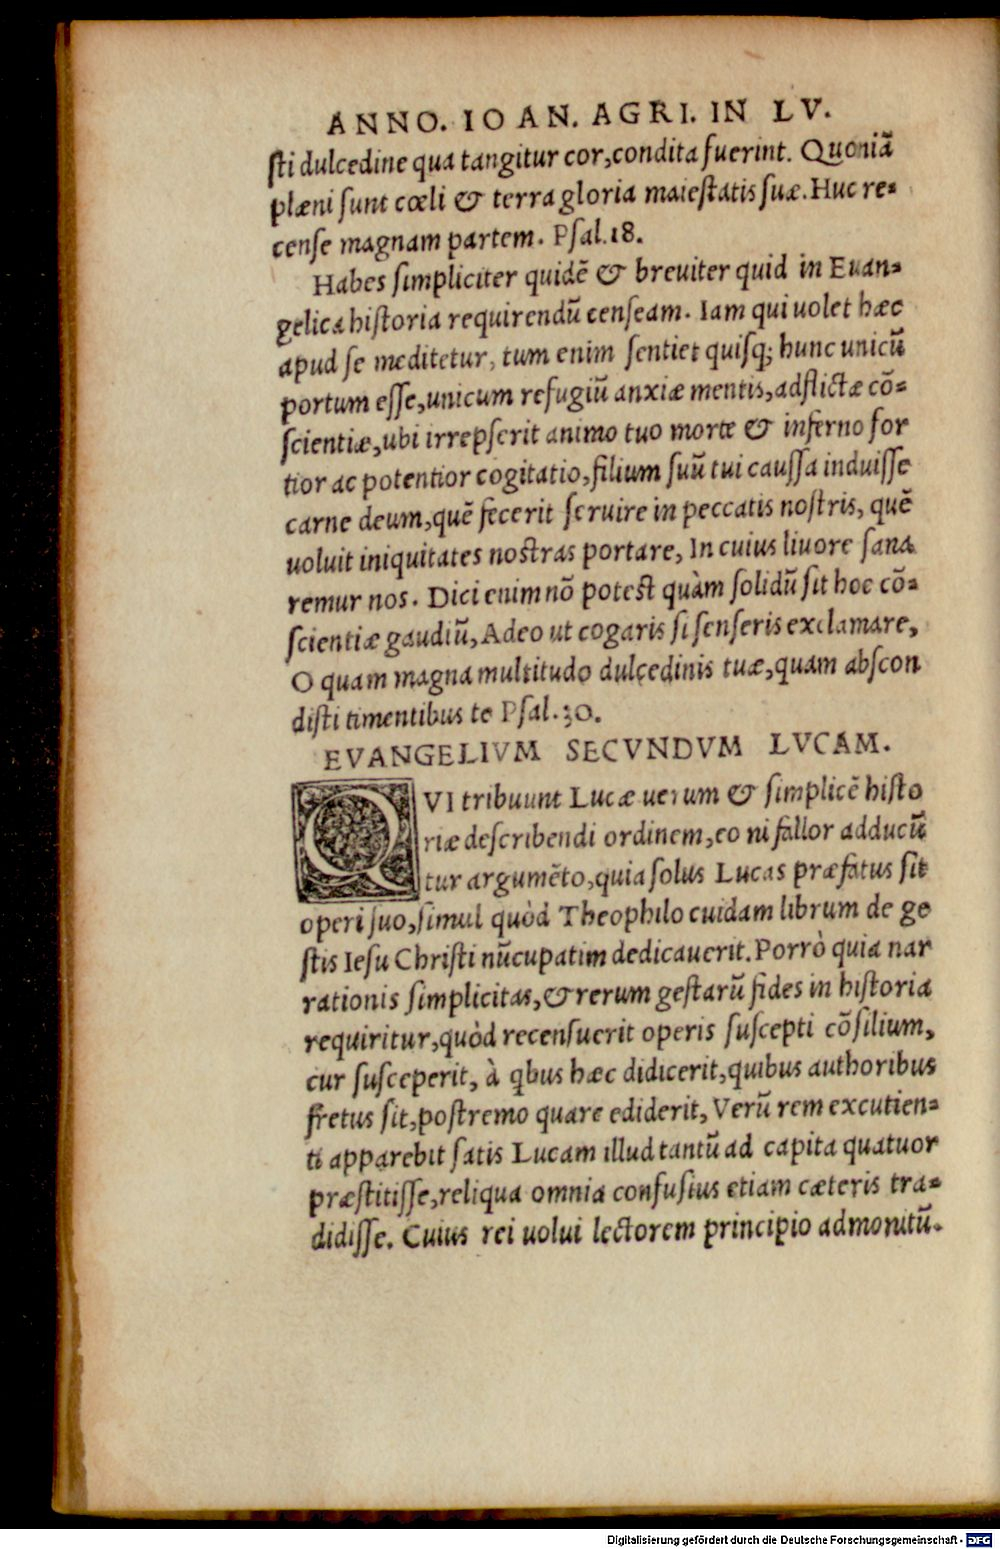 ANNO. IOAN. AGRI. IN LV.
sti dulcedine qua tangitur cor, condita fuerint. Quoniā
plæni sunt cœli & terra gloria maiestatis suæ. Huc re-
cense magnam partem. Psal. 18.
Habes simpliciter quidē & breuiter quid in Euan-
gelica historia requirendū censeam. Iam qui uolet hæc
apud se meditetur, tum enim sentiet quisq; hunc unicū
portum esse, unicum refugiū anxiæ mentis, adflictæ cō-
scientiæ, ubi irrepserit animo tuo morte & inferno for
tior ac potentior cogitatio, filium suū tui caussa induisse
carne deum, quē fecerit seruire in peccatis nostris, quē
uoluit iniquitates nostras portare, In cuius liuore sana
remur nos. Dici enim nō potest quàm solidū sit hoc cō-
scientiæ gaudiū, Adeo ut cogaris si senseris exclamare,
O quam magna multitudo dulcedinis tuæ, quam abscon
disti timentibus te Psal. 30.
EVANGELIVM SECVNDVM LVCAM.
QVI tribuunt Lucæ uerum & simplicē histo
riæ describendi ordinem, eo ni fallor adducū
tur argumēto, quia solus Lucas præfatus sit
operi suo, simul quòd Theophilo cuidam librum de ge
stis Iesu Christi nūcupatim dedicauerit. Porrò quia nar
rationis simplicitas, & rerum gestarū fides in historia
requiritur, quòd recensuerit operis suscepti cōsilium,
cur susceperit, à qbus hæc didicerit, quibus authoribus
fretus sit, postremo quare ediderit, Verū rem excutien-
ti apparebit satis Lucam illud tantū ad capita quatuor
præstitisse, reliqua omnia confusius etiam cæteris tra-
didisse. Cuius rei uolui lectorem principio admonitū.
Digitalisierung gefördert durch die Deutsche Forschungsgemeinschaft - DFG